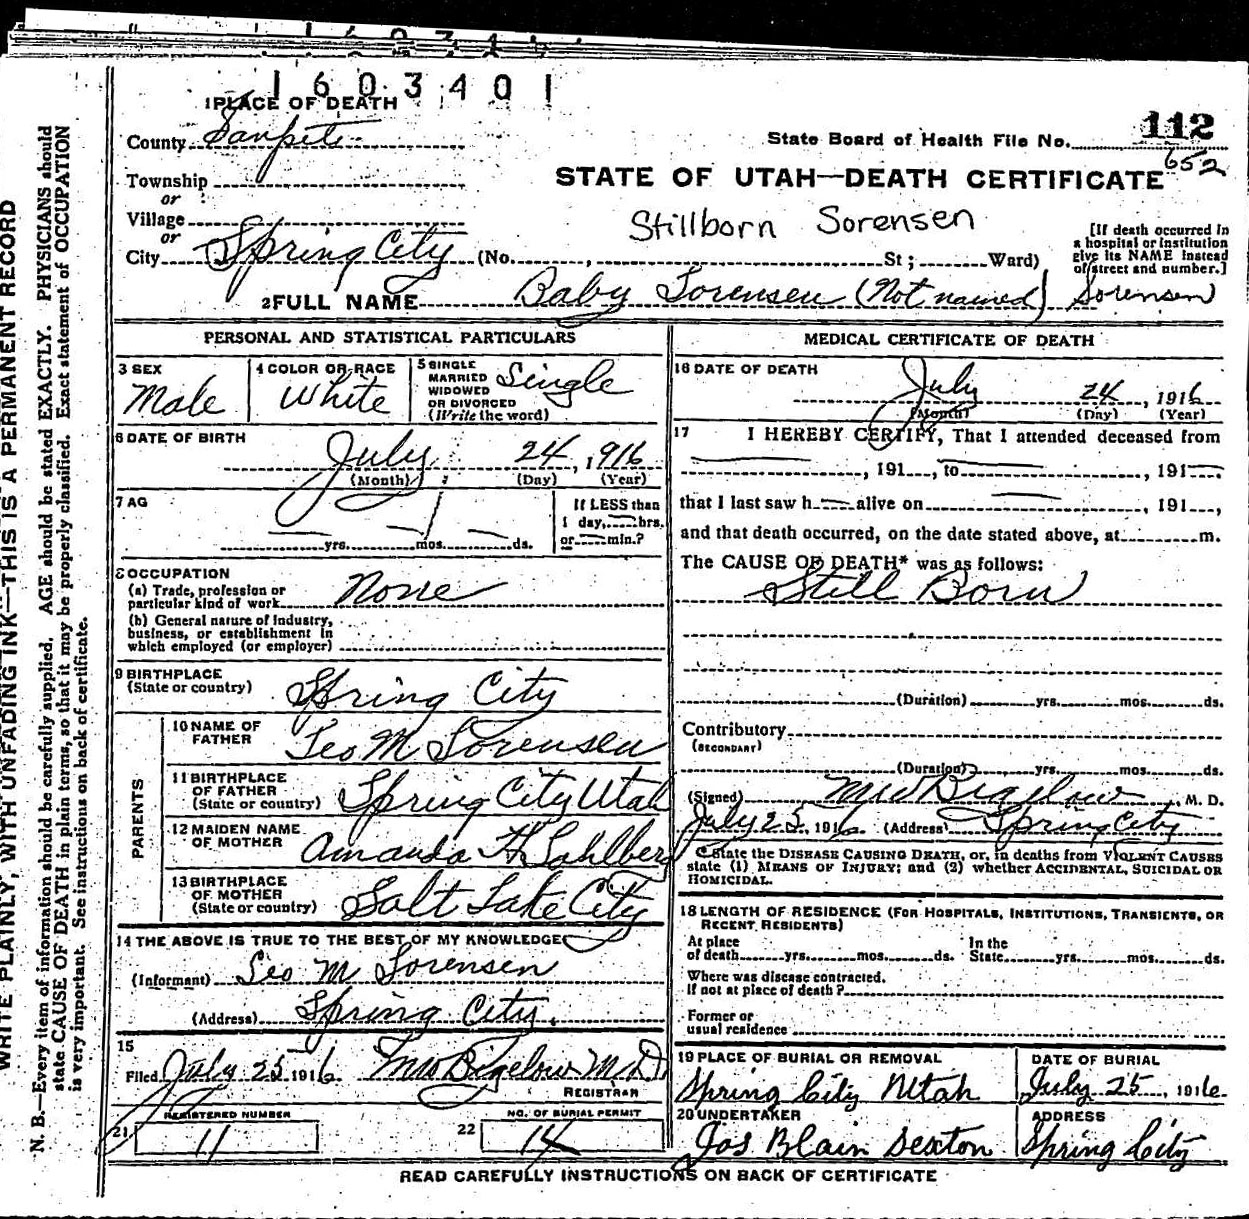 1603401
1 PLACE OF DEATH
County Sanpete
State Board of Health File No. 112
652
Township
or
STATE OF UTAH—DEATH CERTIFICATE
Village
or
Stillborn Sorensen
City Spring City (No. , St; Ward)
[If death occurred in a hospital or institution give its NAME instead of street and number.]
2 FULL NAME Baby Sorensen (Not named) Sorensen
PERSONAL AND STATISTICAL PARTICULARS
3 SEX
Male
4 COLOR OR RACE
White
5 SINGLE
MARRIED
WIDOWED
OR DIVORCED
(Write the word)
Single
6 DATE OF BIRTH
July 24, 1916
(Month) (Day) (Year)
7 AG
yrs. mos. ds.
If LESS than
1 day, hrs.
or min.?
8 OCCUPATION
(a) Trade, profession or
particular kind of work None
(b) General nature of Industry,
business, or establishment in
which employed (or employer)
9 BIRTHPLACE
(State or country) Spring City
PARENTS
10 NAME OF
FATHER Leo M Sorensen
11 BIRTHPLACE
OF FATHER
(State or country) Spring City Utah
12 MAIDEN NAME
OF MOTHER Amanda H. Sahlberg
13 BIRTHPLACE
OF MOTHER
(State or country) Salt Lake City
14 THE ABOVE IS TRUE TO THE BEST OF MY KNOWLEDGE
(Informant) Leo M Sorensen
(Address) Spring City.
15
Filed July 25 1916 MW Bigelow M.D.
REGISTRAR
REGISTERED NUMBER
21 11
NO. OF BURIAL PERMIT
22 14
MEDICAL CERTIFICATE OF DEATH
16 DATE OF DEATH
July 24, 1916
(Month) (Day) (Year)
17 I HEREBY CERTIFY, That I attended deceased from
, 191 , to , 191
that I last saw h alive on , 191 ,
and that death occurred, on the date stated above, at m.
The CAUSE OF DEATH* was as follows:
Still Born
(Duration) yrs. mos. ds.
Contributory
(SECONDARY)
(Duration) yrs. mos. ds.
(Signed) MW Bigelow, M. D.
July 25, 1916 (Address) Spring City
State the DISEASE CAUSING DEATH, or, in deaths from VIOLENT CAUSES
state (1) MEANS OF INJURY; and (2) whether ACCIDENTAL, SUICIDAL OR
HOMICIDAL.
18 LENGTH OF RESIDENCE (FOR HOSPITALS, INSTITUTIONS, TRANSIENTS, OR
RECENT RESIDENTS)
At place
of death yrs. mos. ds.
In the
State yrs. mos. ds.
Where was disease contracted.
If not at place of death?
Former or
usual residence
19 PLACE OF BURIAL OR REMOVAL
Spring City Utah
DATE OF BURIAL
July 25, 1916
20 UNDERTAKER
Jas Blain Sexton
ADDRESS
Spring City
READ CAREFULLY INSTRUCTIONS ON BACK OF CERTIFICATE
WRITE PLAINLY, WITH UNFADING INK—THIS IS A PERMANENT RECORD
N. B.—Every item of information should be carefully supplied. AGE should be stated EXACTLY. PHYSICIANS should
state CAUSE OF DEATH in plain terms, so that it may be properly classified. Exact statement of OCCUPATION
is very important. See instructions on back of certificate.